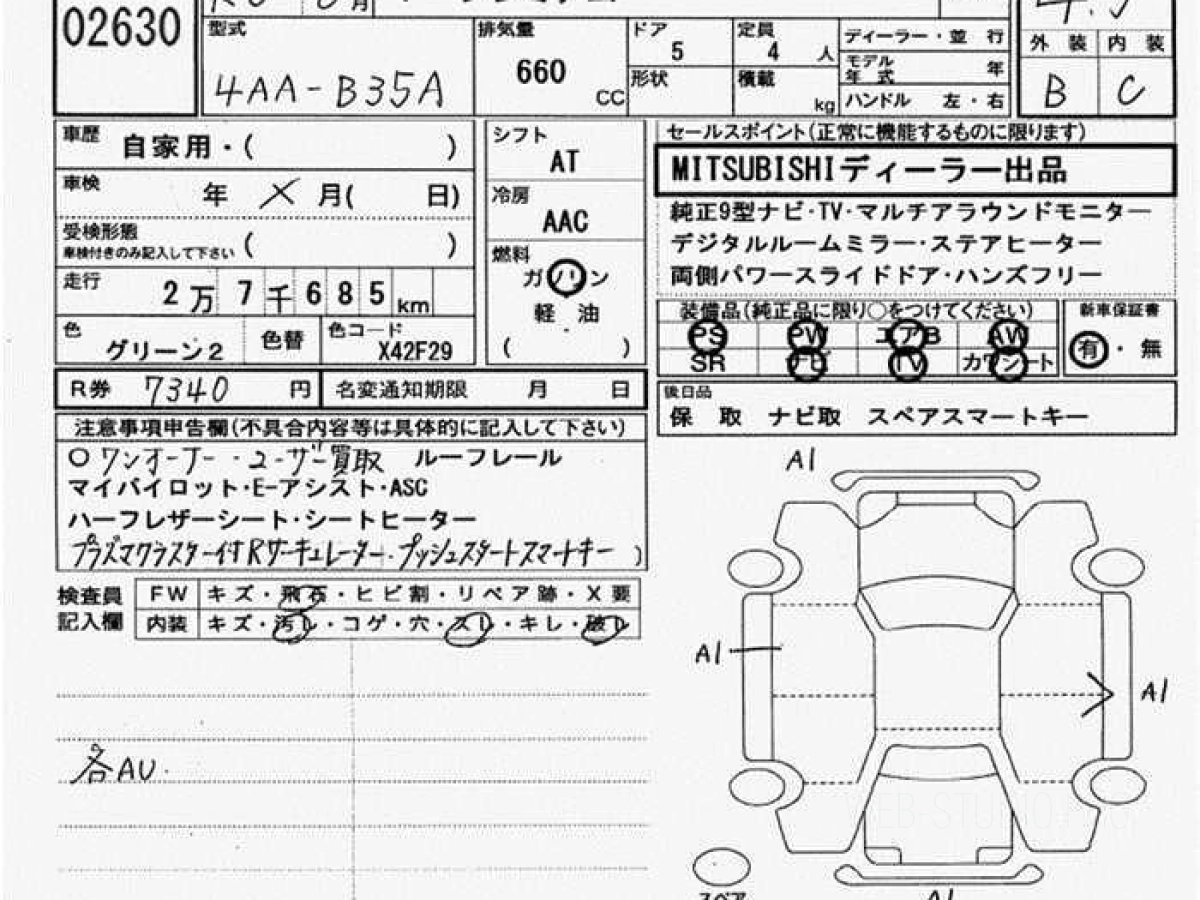 02630
型式
4AA-B35A
排気量
660
CC
ドア
5
形状
定員
4 人
積載
kg
ディーラー・並 行
モデル年式 年
ハンドル 左・右
外 装 内 装
B C
車歴
自家用・( )
車検
年 X 月( 日)
受検形態
車検付きのみ記入して下さい ( )
走行
2万7千685km
色
グリーン2
色替
色コード
X42F29
シフト
AT
冷房
AAC
燃料
ガソリン
軽 油
( )
セールスポイント(正常に機能するものに限ります)
MITSUBISHIディーラー出品
純正9型ナビ・TV・マルチアラウンドモニター
デジタルルームミラー・ステアヒーター
両側パワースライドドア・ハンズフリー
装備品(純正品に限り○をつけてください)
PS PW エアB AW
SR ナビ TV カワシート
新車保証書
有・無
R券 7340 円
名変通知期限 月 日
後日品
保 取 ナビ取 スペアスマートキー
注意事項申告欄(不具合内容等は具体的に記入して下さい)
○ワンオーナー・ユーザー買取 ルーフレール
マイパイロット・E-アシスト・ASC
ハーフレザーシート・シートヒーター
プラズマクラスター付Rサーキュレーター・プッシュスタートスマートキー )
検査員記入欄
FW キズ・飛石・ヒビ割・リペア跡・X要
内装 キズ・汚レ・コゲ・穴・スレ・キレ・破レ
各AU.
A1
A1
A1
A1
スペア
WEB-STUDIO